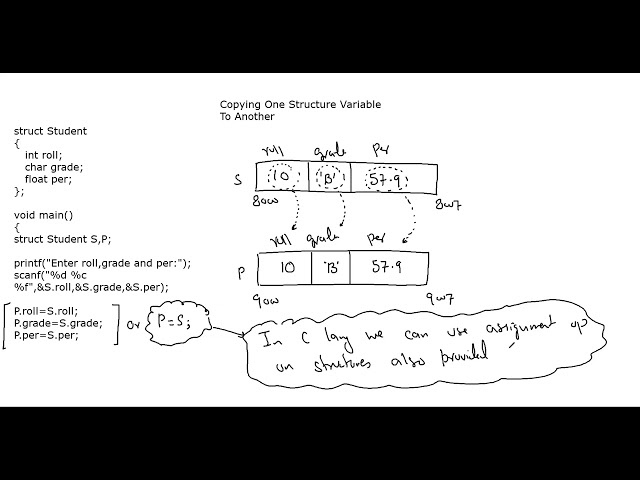 Copying One Structure Variable
To Another
struct Student
{
int roll;
char grade;
float per;
};
void main()
{
struct Student S,P;
printf("Enter roll,grade and per:");
scanf("%d %c
%f",&S.roll,&S.grade,&S.per);
P.roll=S.roll;
P.grade=S.grade;
P.per=S.per;
or P=S;
roll grade per
S 10 'B' 57.9
8000 8007
roll grade per
P 10 'B' 57.9
9000 9007
In C lang we can use assignment op
on structures also provided